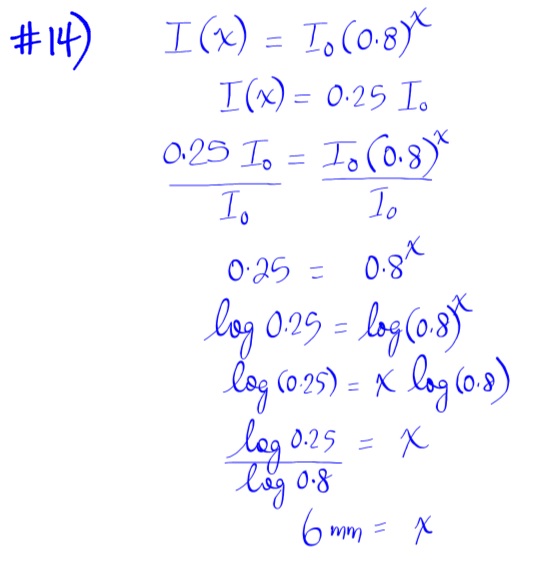 #14) I(x) = I₀(0.8)ˣ
I(x) = 0.25 I₀
0.25 I₀ / I₀ = I₀(0.8)ˣ / I₀
0.25 = 0.8ˣ
log 0.25 = log(0.8)ˣ
log(0.25) = x log(0.8)
log 0.25 / log 0.8 = x
6 mm = x